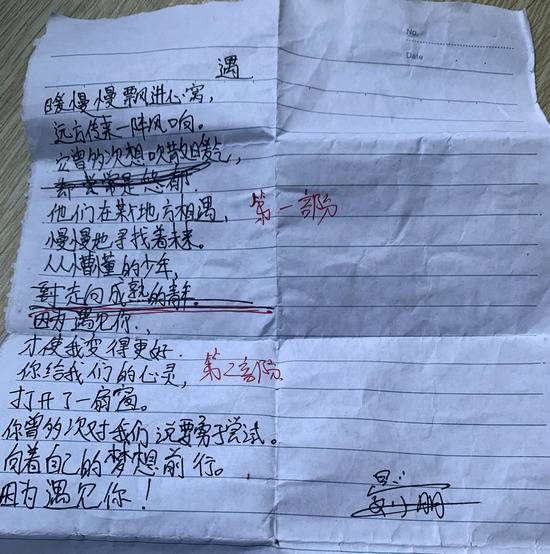 No.
Date
遇
暖慢慢飘进心窝,
远方传来一阵风响。
它曾多次想吹散暖气,
他们在某地方相遇, 第一部分
慢慢地寻找着未来。
从懵懂的少年,
到走向成熟的青年。
因为遇见你.
才使我变得更好.
你给我们的心灵, 第2部分
打开了一扇窗。
你曾多次对我们说要勇于尝试。
向着自己的梦想前行。
因为遇见你!